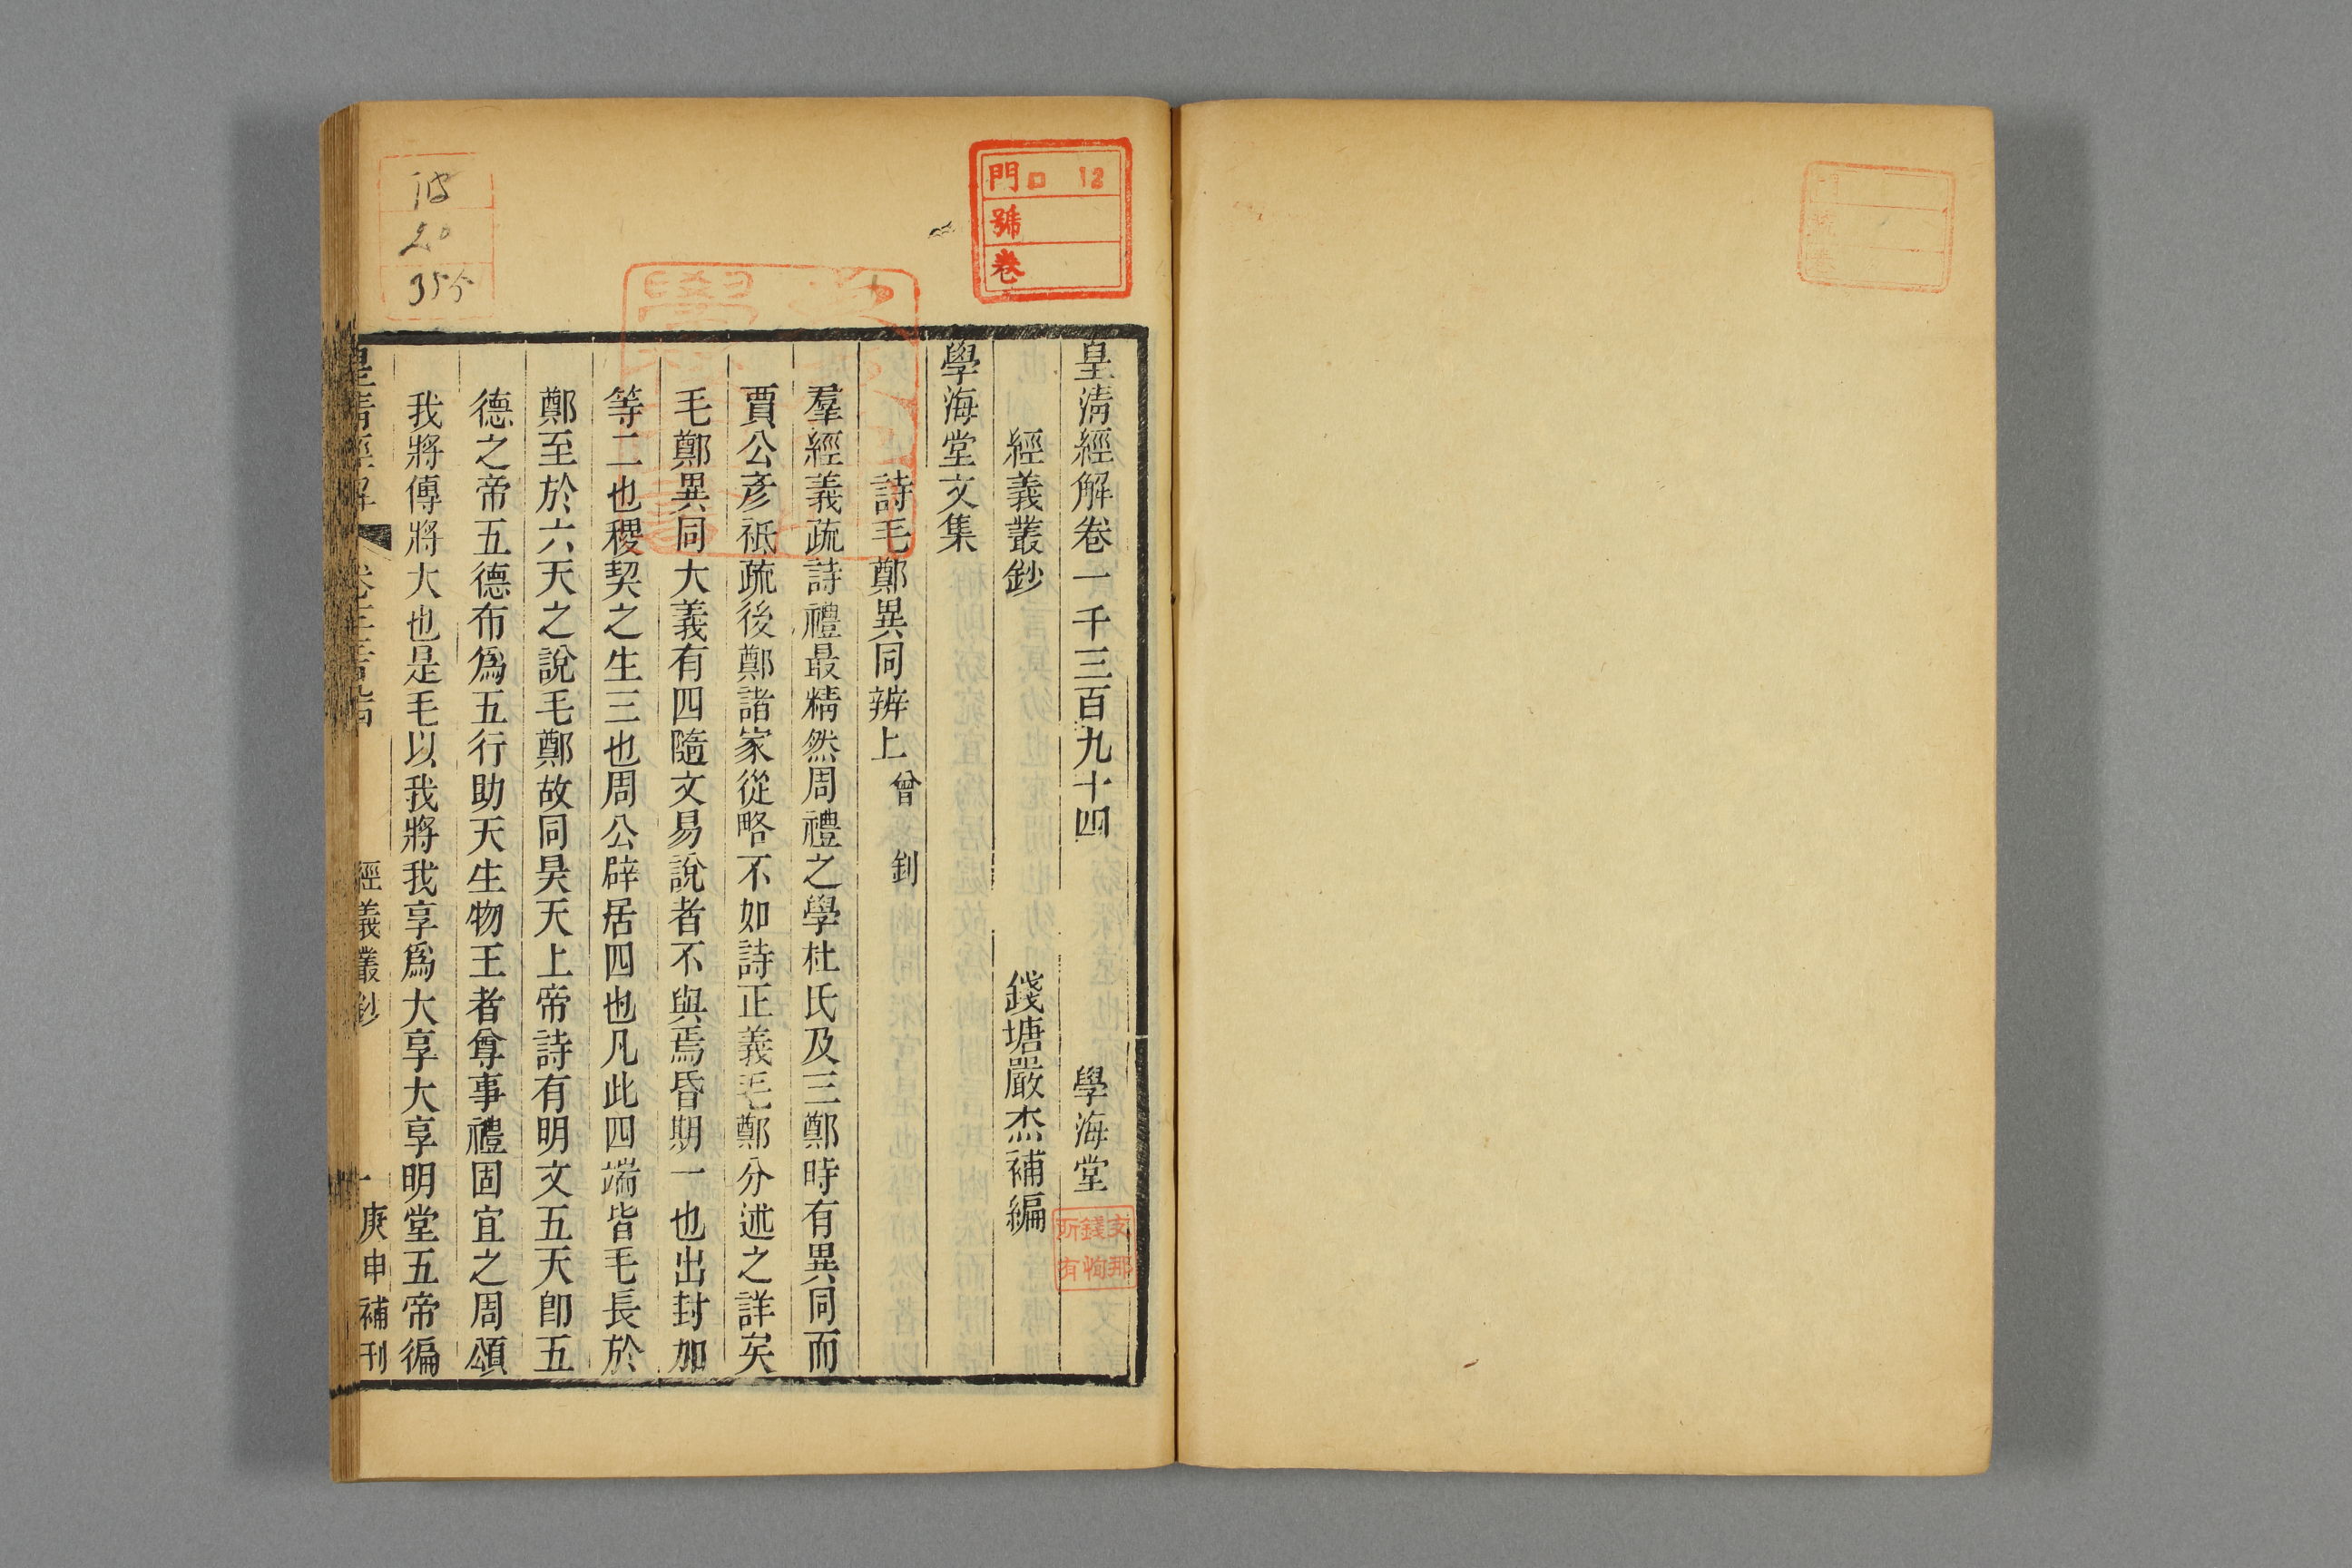 皇清經解卷一千三百九十四 學海堂
經義叢鈔 錢塘嚴杰補編
學海堂文集
詩毛鄭異同辨上 曾釗
羣經義疏詩禮最精然周禮之學杜氏及三鄭時有異同而
賈公彥祗疏後鄭諸家從略不如詩正義毛鄭分述之詳矣
毛鄭異同大義有四隨文易說者不與焉昏期一也出封加
等二也稷契之生三也周公辟居四也凡此四端皆毛長於
鄭至於六天之說毛鄭故同昊天上帝詩有明文五天卽五
德之帝五德布爲五行助天生物王者尊事禮固宜之周頌
我將傳將大也是毛以我將我享爲大享大享明堂五帝徧
皇清經解 經義叢鈔 一 庚申補刊
門 口 12
號
卷
支那
錢恂
所有
20
355